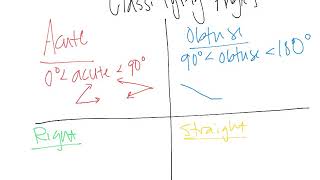 Classifying Angles
Acute
0° < acute < 90°
Obtuse
90° < obtuse < 180°
Right
Straight